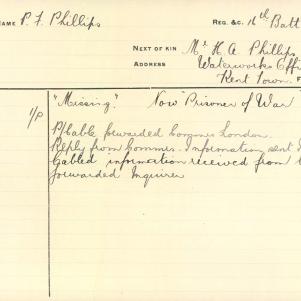 NAME P. F. Phillips REG. &C. 16th Batt
NEXT OF KIN Mr H. A. Phillips
ADDRESS Waterworks Offi
Kent Town.
"Missing." Now Prisoner of War
Cable forwarded London.
Reply from Commr. Information sent
Cabled information received from
forwarded Inquirer